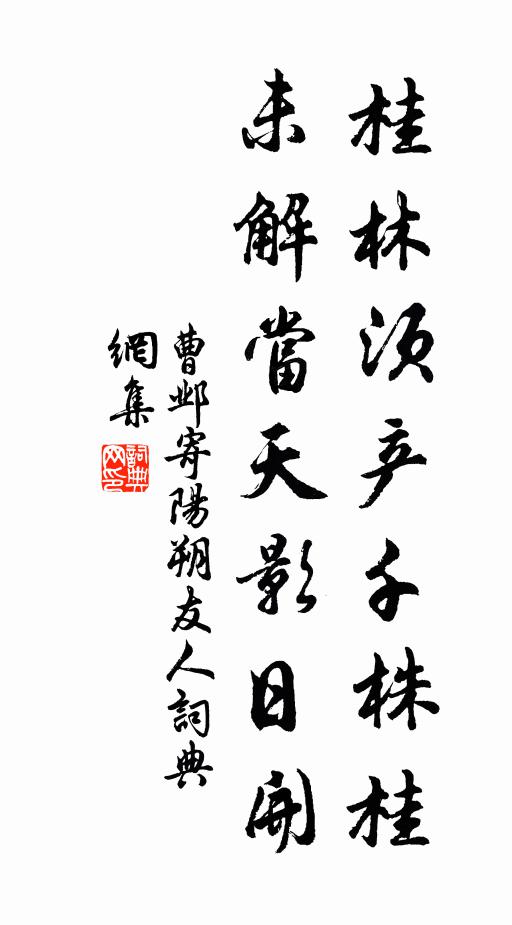 桂林须产千株桂
未解當天影日開
曹邺寄陽朔友人詞典
網集
詞典
网印